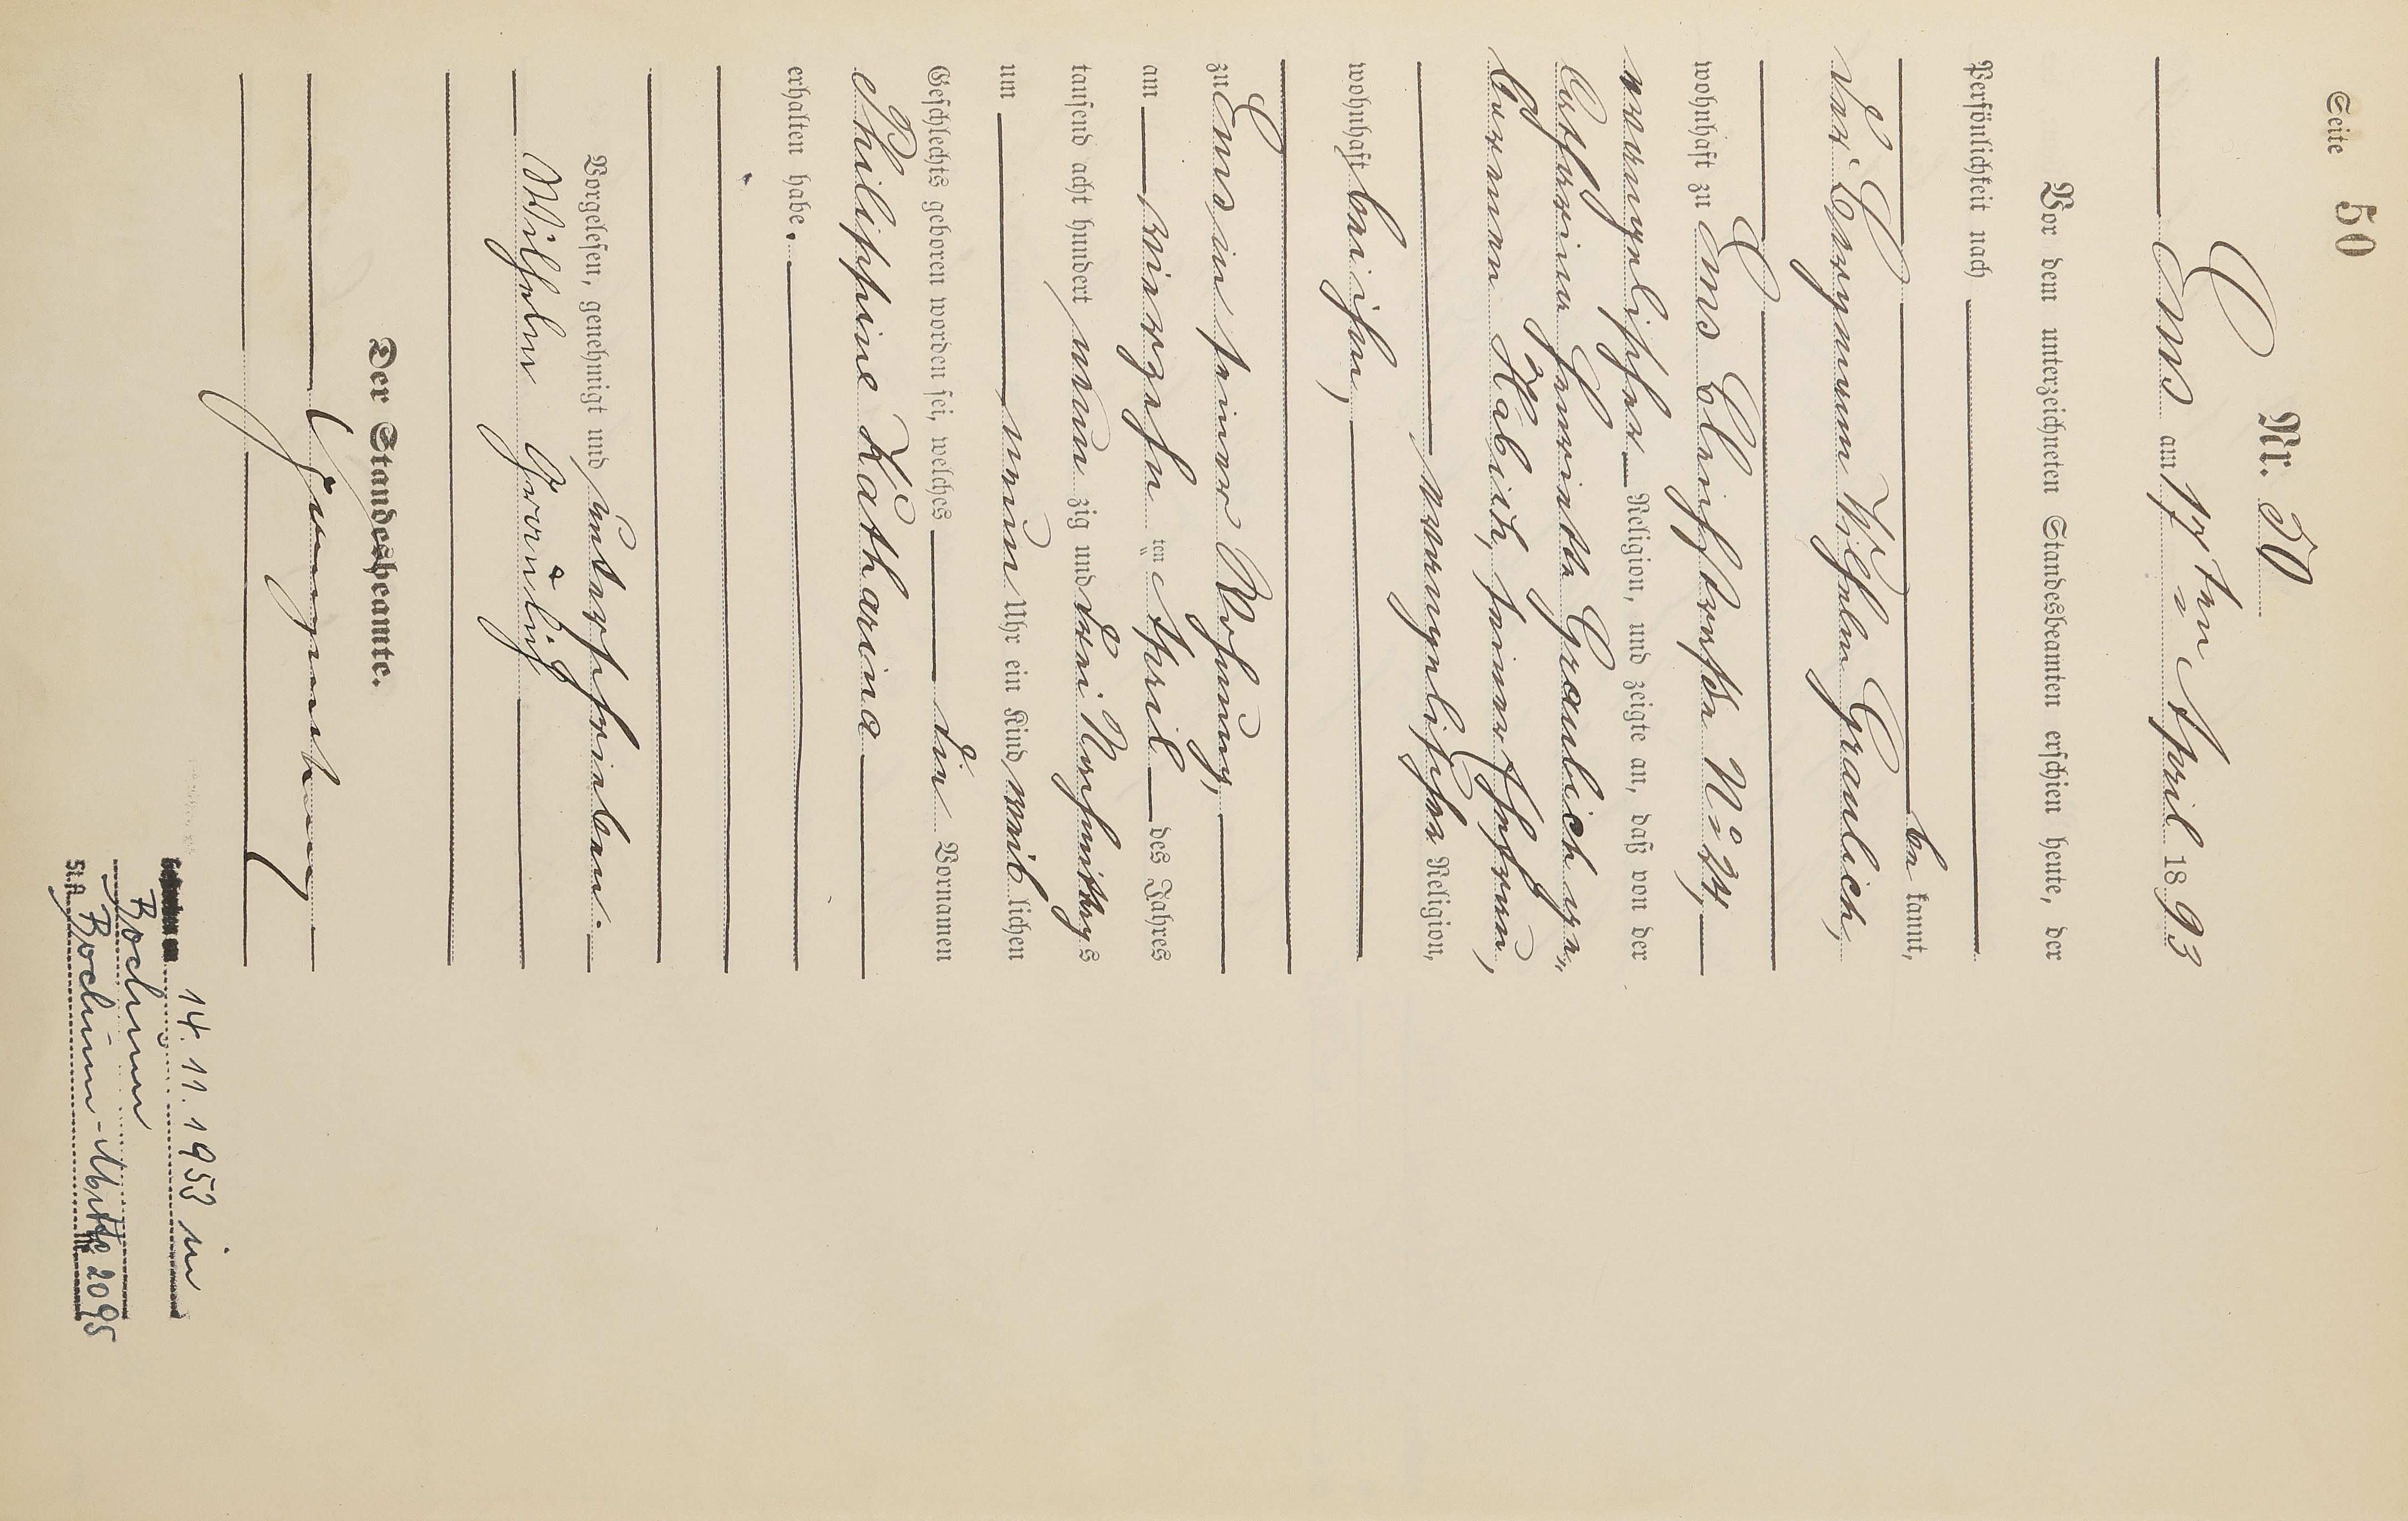 Seite 50
Nr. 50
Ems am 17ten April 1893
Vor dem unterzeichneten Standesbeamten erschien heute, der
Persönlichkeit nach
be kannt,
der Bergmann Wilhelm Graulich,
wohnhaft zu Ems Bleichstraße No 24,
evangelischer Religion, und zeigte an, daß von der
Catharine Henriette Graulich ge„
borenen Habich, seiner Ehefrau,
evangelischer Religion,
wohnhaft bei ihm,
zu Ems in seiner Wohnung,
am vierzehn ten April des Jahres
tausend acht hundert neun zig und drei Nachmittags
um neun Uhr ein Kind weib lichen
Geschlechts geboren worden sei, welches die Vornamen
Philippine Katharina
erhalten habe.
Vorgelesen, genehmigt und unterschrieben.
Wilhelm Graulich
Der Standesbeamte.
Gestorben am 14.11.1953 in
Bochum
St.A. Bochum-Mitte Nr. 2095